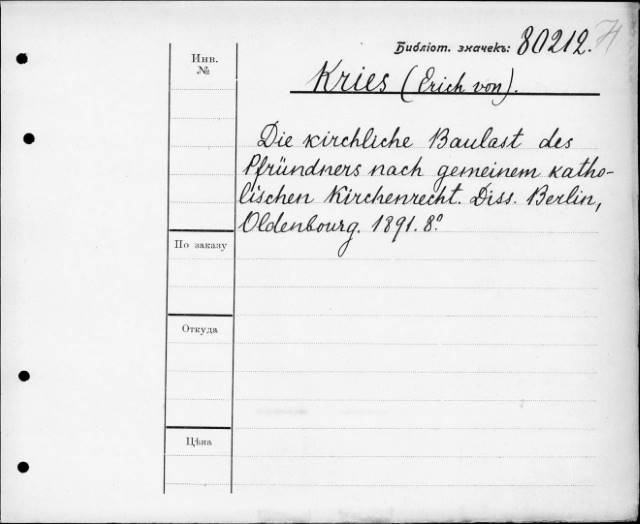 Библіот. значекъ: 80212.
Инв.
№
Kries (Erich von).
Die kirchliche Baulast des
Pfründners nach gemeinem katho-
lischen Kirchenrecht. Diss. Berlin,
Oldenbourg. 1891. 8º
По заказу
Откуда
Цѣна